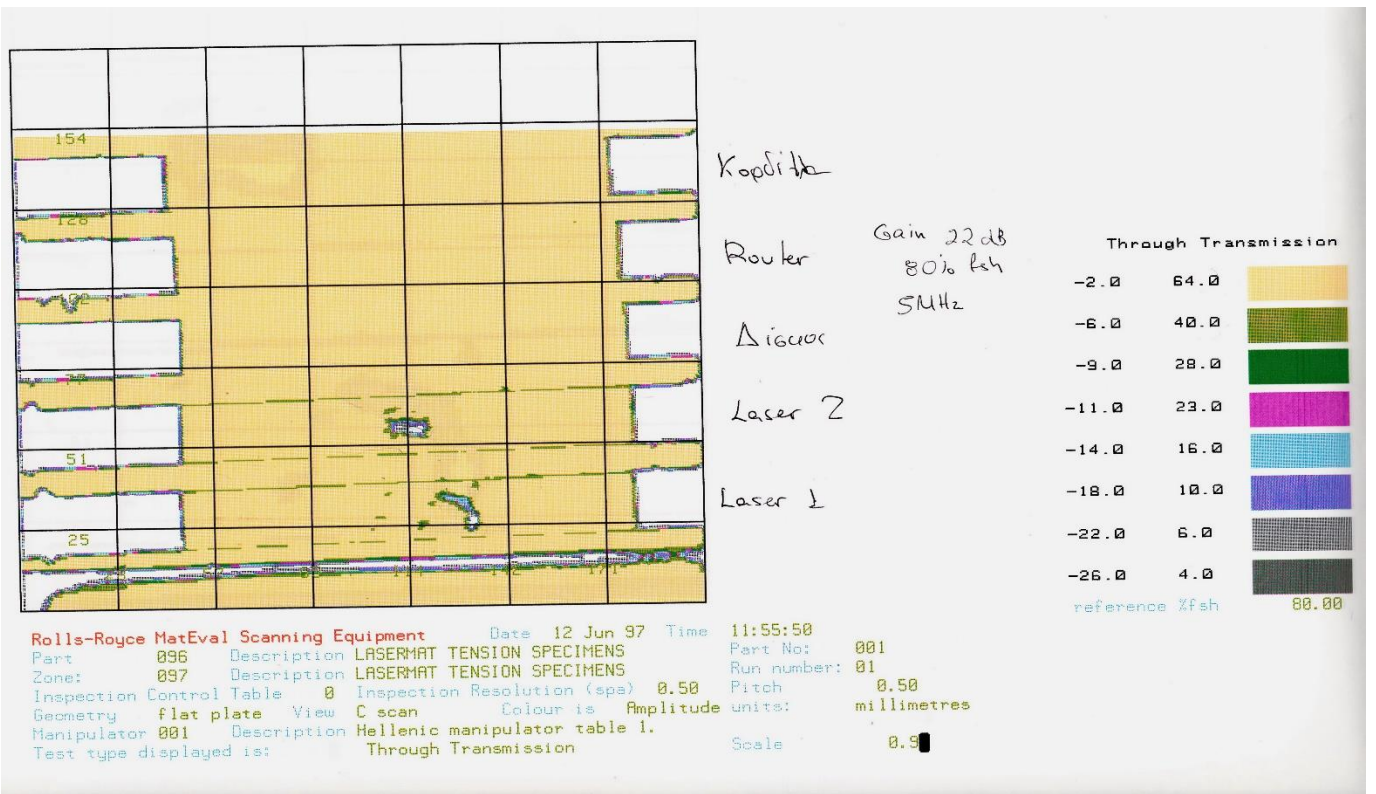 154
128
102
77
51
25
142
171
Κορδέλα
Router
Δίσκος
Laser 2
Laser 1
Gain 22 dB
80% fsh
5MHz
Through Transmission
-2.0 64.0
-6.0 40.0
-9.0 28.0
-11.0 23.0
-14.0 16.0
-18.0 10.0
-22.0 6.0
-26.0 4.0
reference %fsh 80.00
Rolls-Royce MatEval Scanning Equipment Date 12 Jun 97 Time 11:55:50
Part 096 Description LASERMAT TENSION SPECIMENS Part No: 001
Zone: 097 Description LASERMAT TENSION SPECIMENS Run number: 01
Inspection Control Table 0 Inspection Resolution (spa) 0.50 Pitch 0.50
Geometry flat plate View C scan Colour is Amplitude units: millimetres
Manipulator 001 Description Hellenic manipulator table 1.
Test type displayed is: Through Transmission Scale 0.9